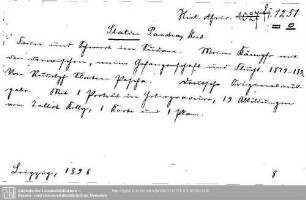 Hist. Afric. 1027 f, 1251
Slatin Pascha, Rud.
Feuer und Schwert im Sudan. Meine Kämpfe mit
den Derwischen, meine Gefangenschaft und Flucht. 1879-1895.
Von Rudolf Slatin Pascha. Deutsche Originalaus-
gabe. Mit 1 Porträt in Heliogravüre, 19 Abbildungen
von Talbot Kelly, 1 Karte und 1 Plan.
Leipzig, 1896 8
Sächsische Landesbibliothek -
Staats- und Universitätsbibliothek Dresden